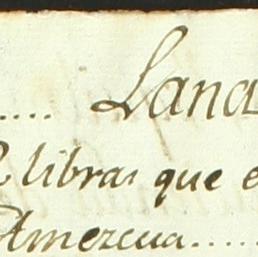 .... Lana
libras que e
Amezcua.....